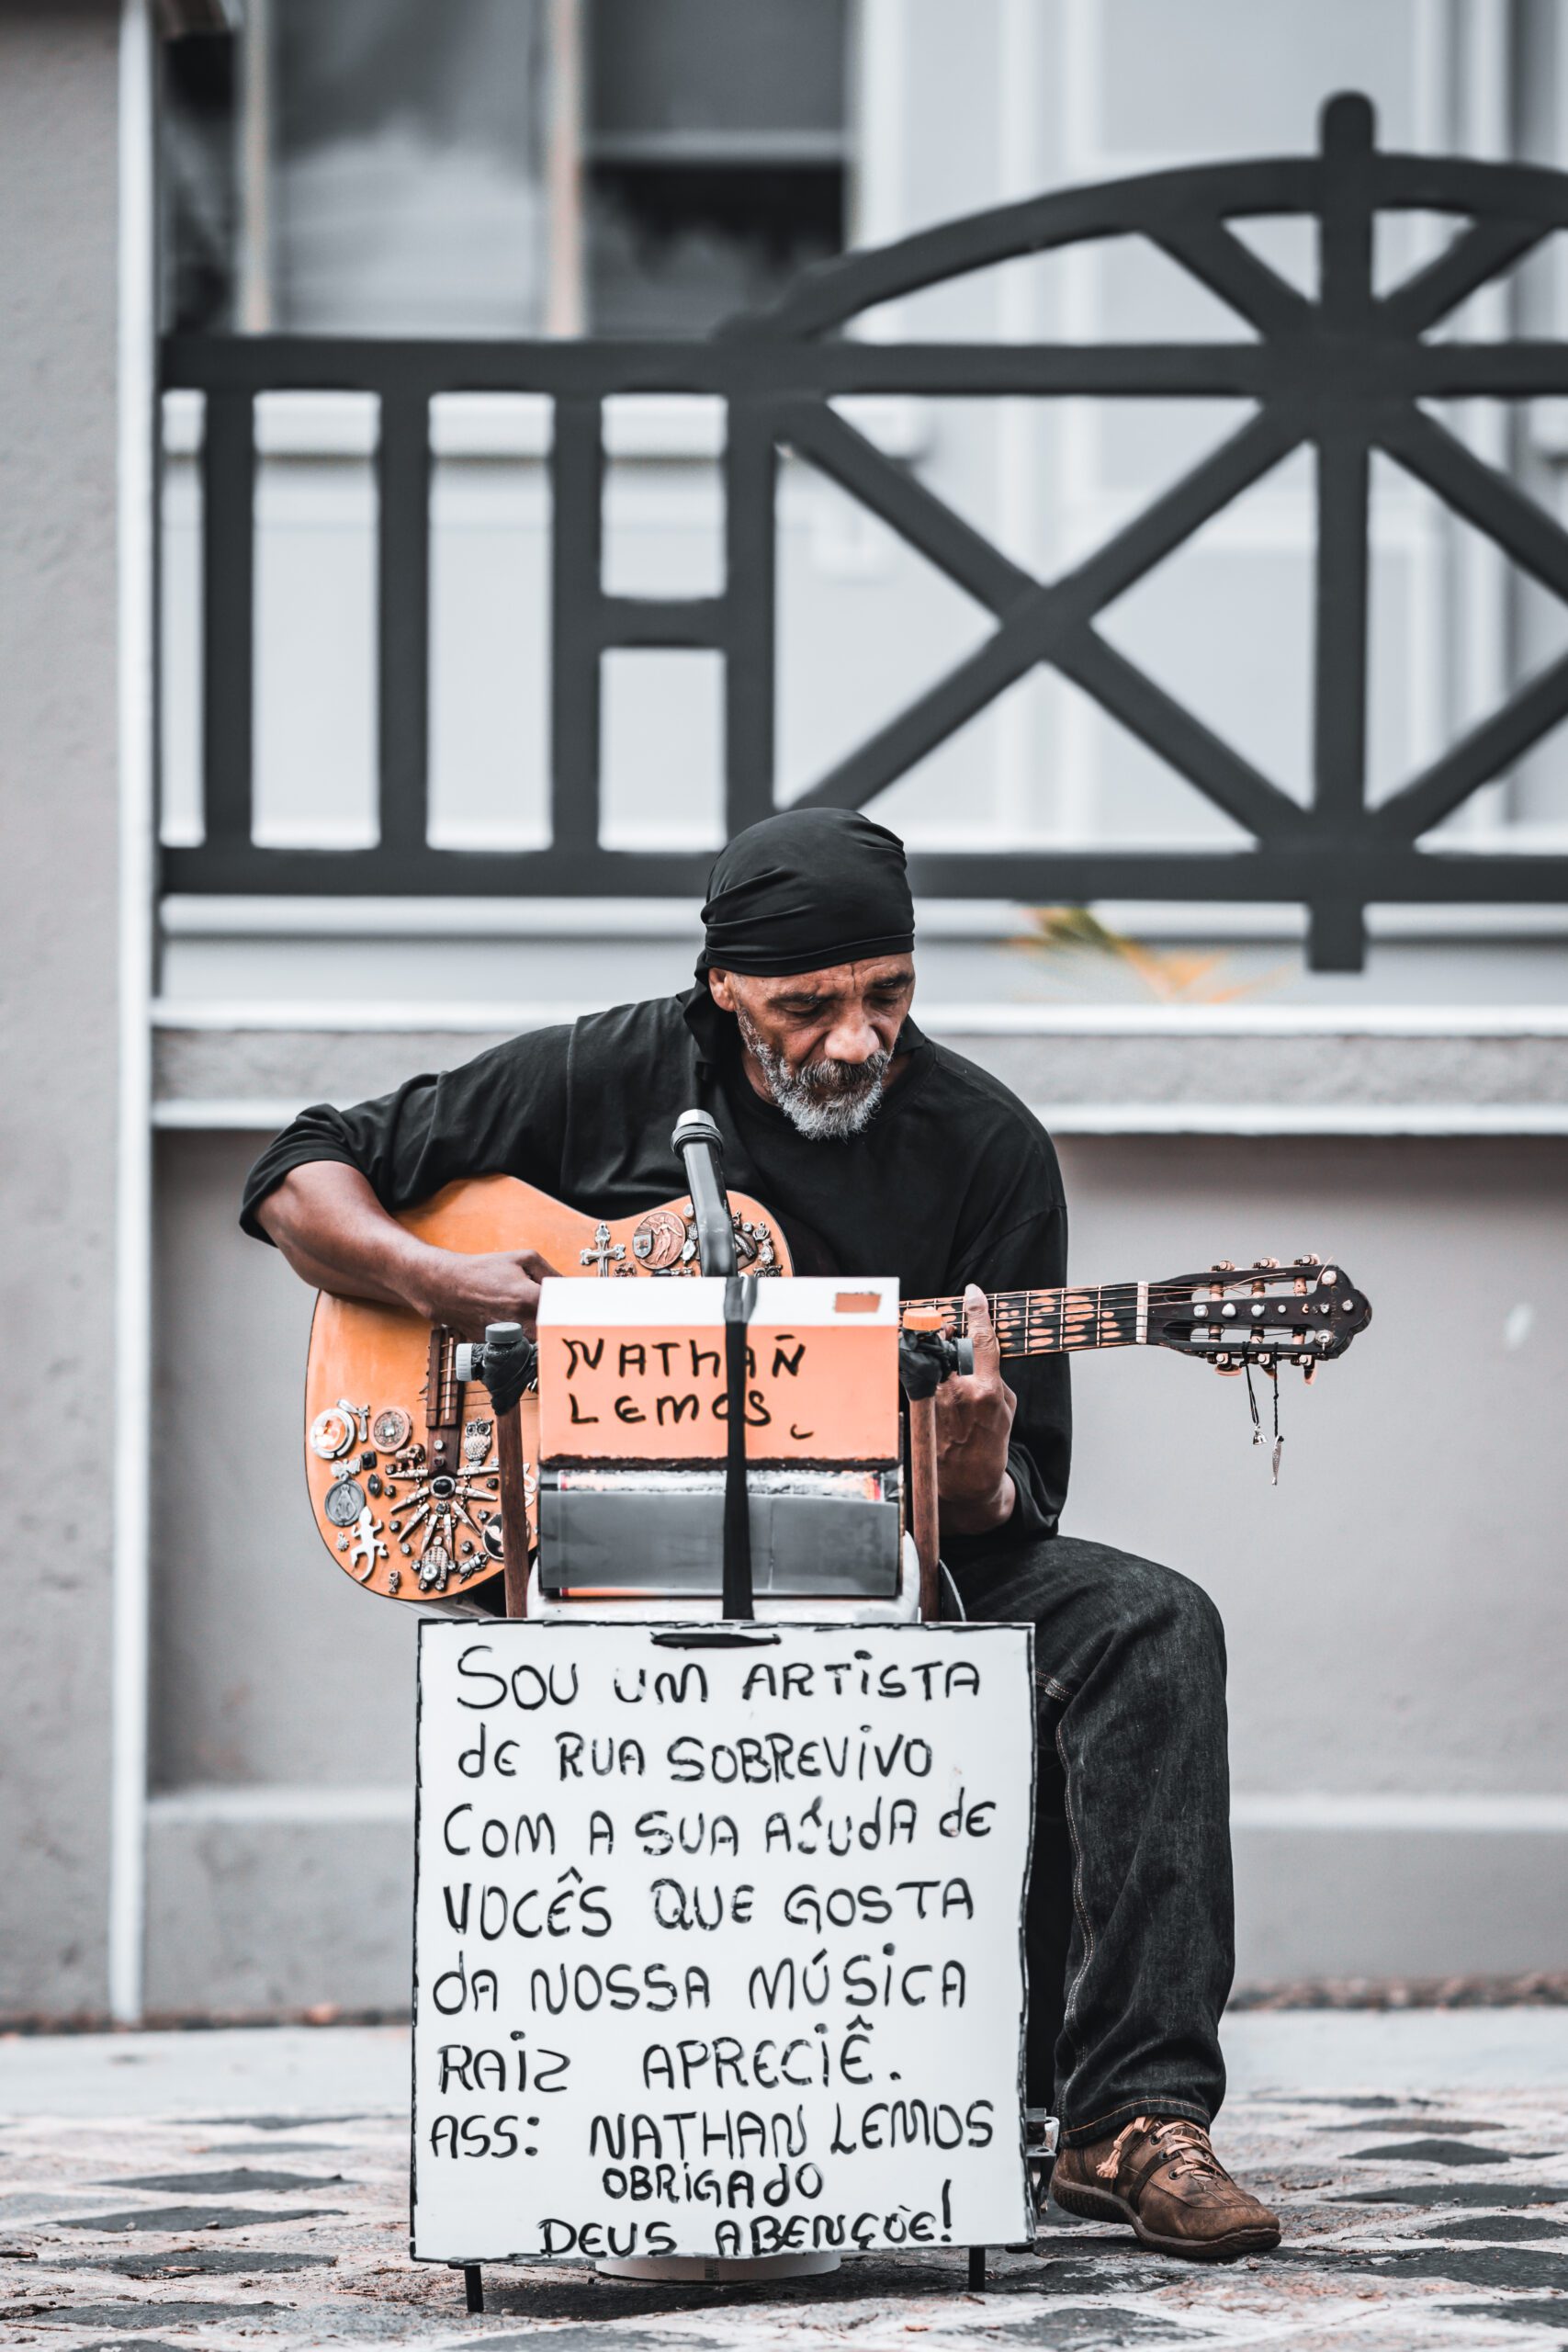 NATHAÑ
LEMOS
SOU UM ARTiSTA
dE RUA SOBREViVO
COM A SUA AJUdA dE
VOCÊS QUE GOSTA
dA NOSSA MÚSiCA
RAiz APRECiÊ.
ASS: NATHAN LEMOS
OBRiGAdO
DEUS ABENÇÒE!